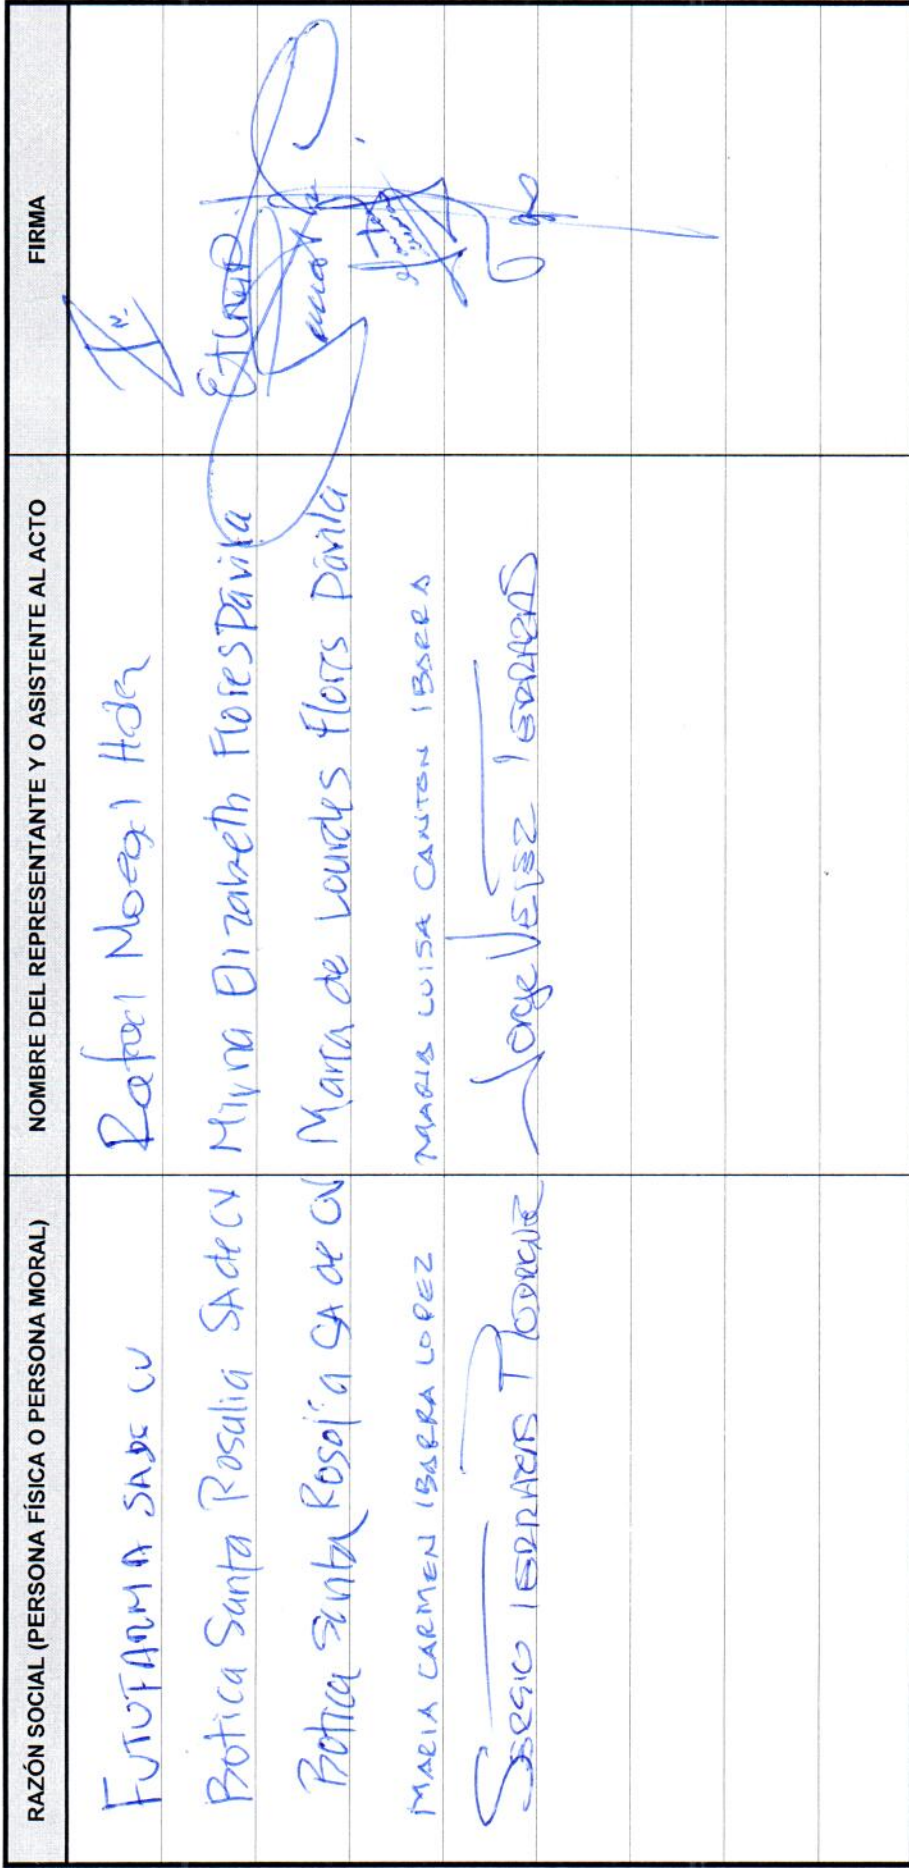 RAZÓN SOCIAL (PERSONA FÍSICA O PERSONA MORAL) NOMBRE DEL REPRESENTANTE Y O ASISTENTE AL ACTO FIRMA
FUTUFARMA SA DE CV Rafael
Botica Santa Rosalia SA de CV Mirna Elizabeth Flores Dávila
Botica Santa Rosalía SA de CV María de Lourdes Flores Dávila
MARIA CARMEN IBARRA LOPEZ MARIA LUISA CANTON IBARRA
SERGIO TERRAZAS Jorge VELEZ TERRAZAS